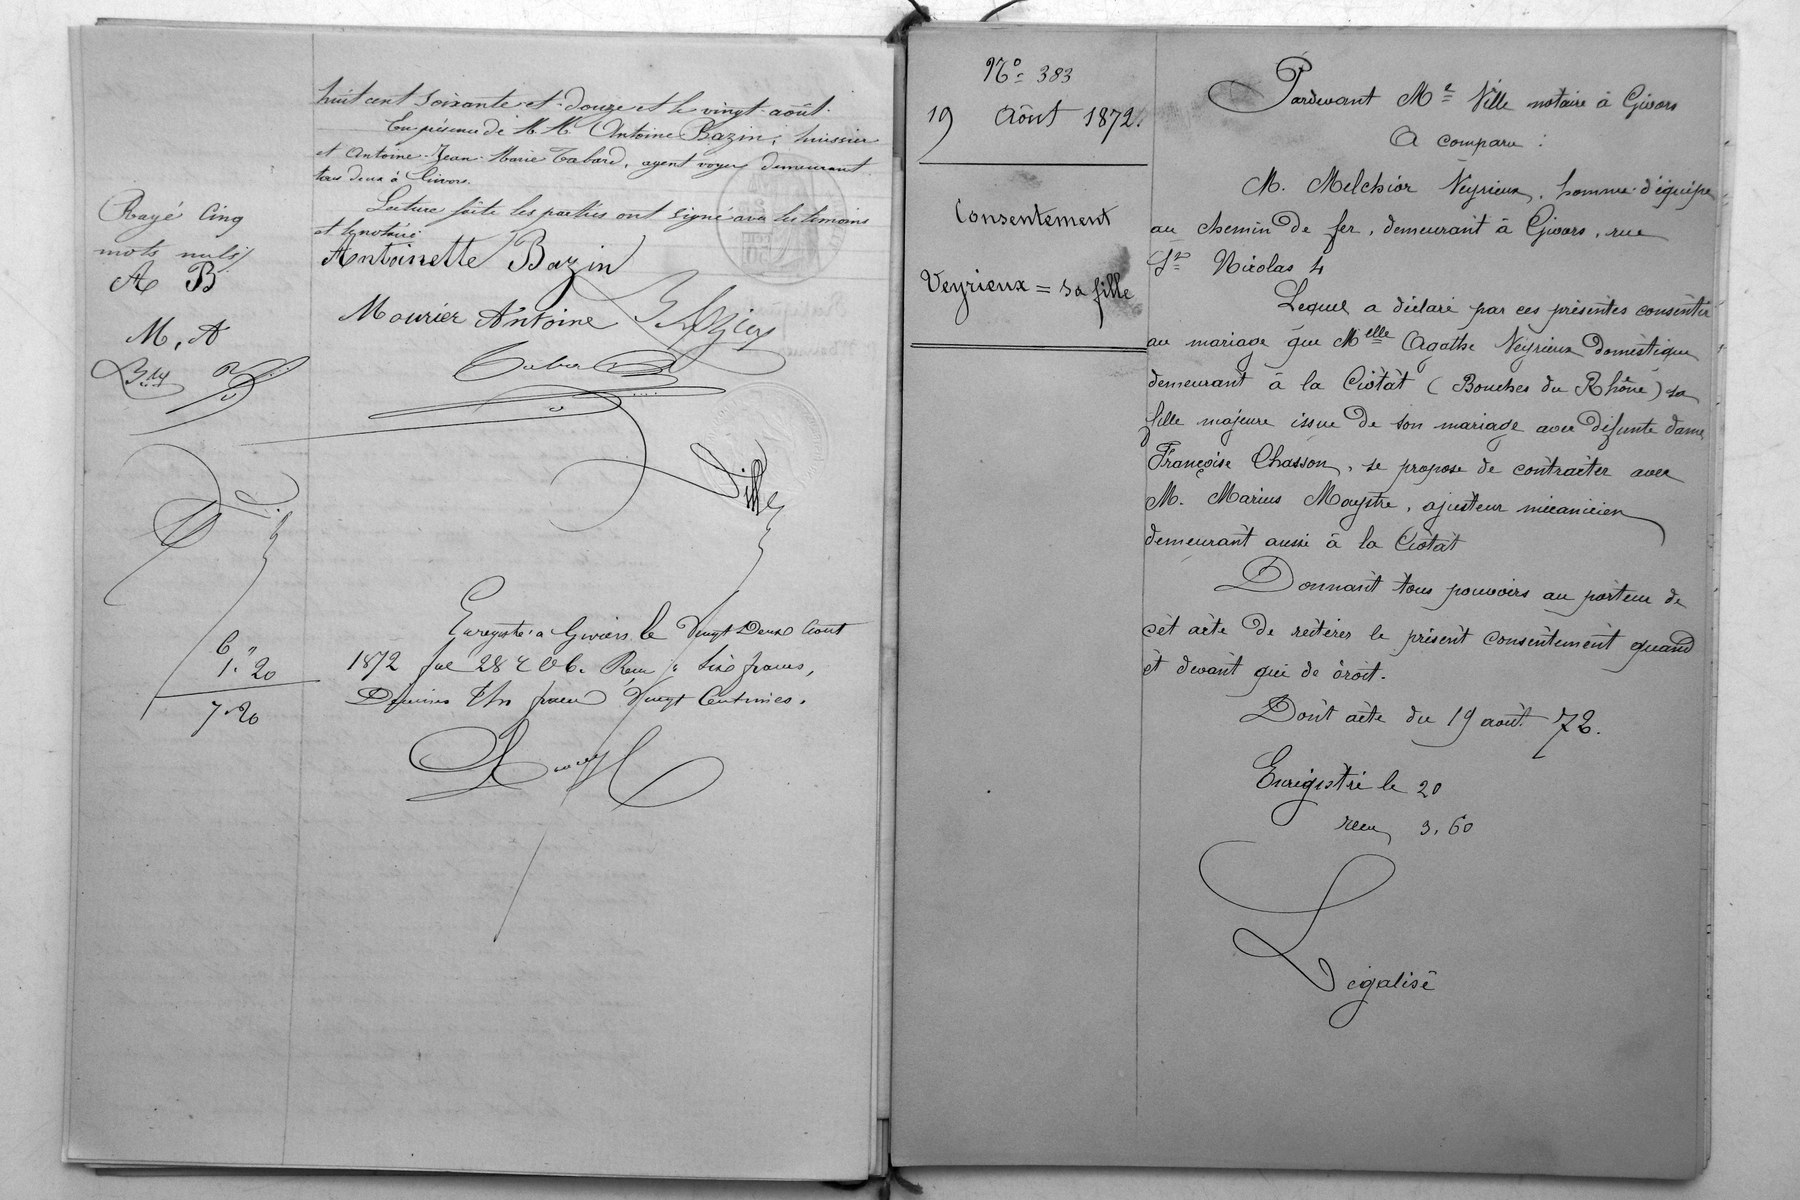 huit cent soixante et douze et le vingt août.
En présence de M. M. Antoine Bazin, huissier
et Antoine Jean Marie Tabard, agent voyer demeurant
tous deux à Givors.
Lecture faite les parties ont signé avec les témoins
et le notaire
Rayé Cinq
mots nuls
A B
M, A
Antoinette Bazin
Mourier Antoine
Tabard
Ville
Enregistré à Givors le Vingt Deux Août
1872 fol 28 Reçu Six francs,
Décimes Un franc Vingt Centimes.
6 "
1. 20
7. 20
No 383
19 Août 1872.
Consentement
Veyrieux = sa fille
Pardevant Me Ville notaire à Givors
A comparu :
M. Melchior Veyrieux, homme d'équipe
au chemin de fer, demeurant à Givors, rue
St Nicolas 4
Lequel a déclaré par ces présentes consentir
au mariage que Melle Agathe Veyrieux domestique
demeurant à la Ciotat (Bouches du Rhône) sa
fille majeure issue de son mariage avec défunte dame
Françoise Chasson, se propose de contracter avec
M. Marius Moystre, ajusteur mécanicien
demeurant aussi à la Ciotat
Donnant tous pouvoirs au porteur de
cet acte de réitérer le présent consentement quand
et devant qui de droit.
Dont acte du 19 août 72.
Enregistré le 20
reçu 3, 60
Légalisé